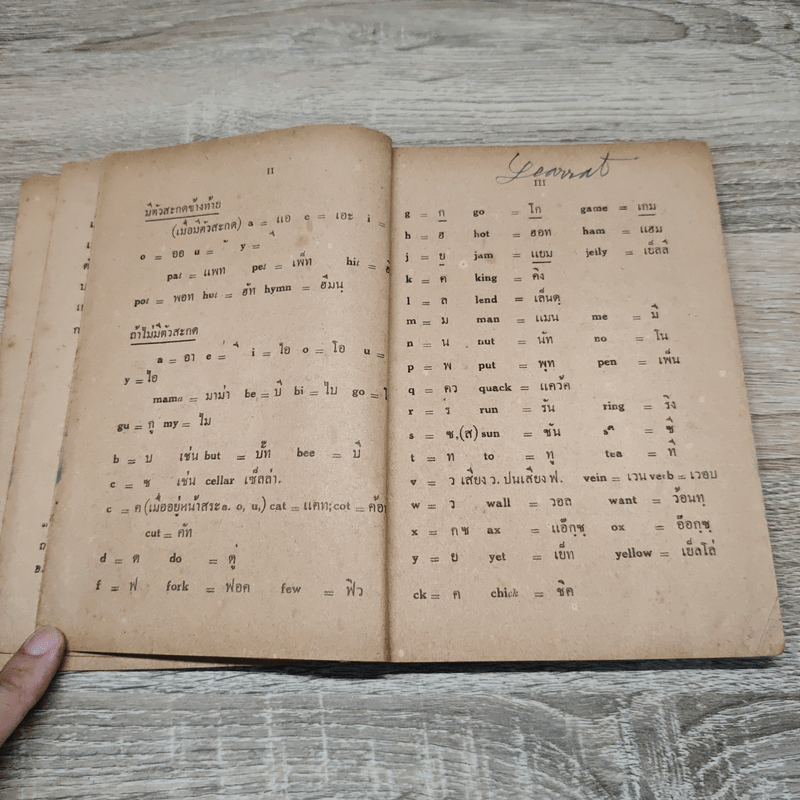 II
มีตัวสะกดข้างท้าย
(เมื่อมีตัวสะกด) a = แอ e = เอะ i =
o = ออ u = ั y = ี
pat = แพท pet = เพ็ท hit =
pot = พอท hut = ฮัท hymn = ฮีมนฺ
ถ้าไม่มีตัวสะกด
a = อา e = ี i = ไอ o = โอ u =
y = ไอ
mama = มาม่า be = บี bi = ไบ go =
gu = กู my = ไม
b = บ เช่น but = บั้ท bee = บี
c = ซ เช่น cellar เซ็ลล่า.
c = ค (เมื่ออยู่หน้าสระ a. o, u,) cat = แคท; cot = ค้อท
cut = คัท
d = ด do = ดู่
f = ฟ fork = ฟอค few = ฟิว
Learrat
III
g = ก go = โก game = เกม
h = ฮ hot = ฮอท ham = แฮม
j = ย jam = แยม jelly = เย็ลลี่
k = ค king = คิง
l = ล lend = เล็นดฺ
m = ม man = แมน me = มี
n = น nut = นัท no = โน
p = พ put = พุท pen = เพ็น
q = คว quack = แคว้ค
r = ร run = รัน ring = ริง
s = ซ,(ส) sun = ซัน = ซี
t = ท to = ทู tea = ที
v = ว เสียง ว. ปนเสียง ฟ. vein = เวน verb = เวอบ
w = ว wall = วอล want = ว้อนทฺ
x = กซ ax = แอ๊กซฺ ox = อ๊อกซฺ
y = ย yet = เย็ท yellow = เย็ลโล่
ck = ค chick = ชิค